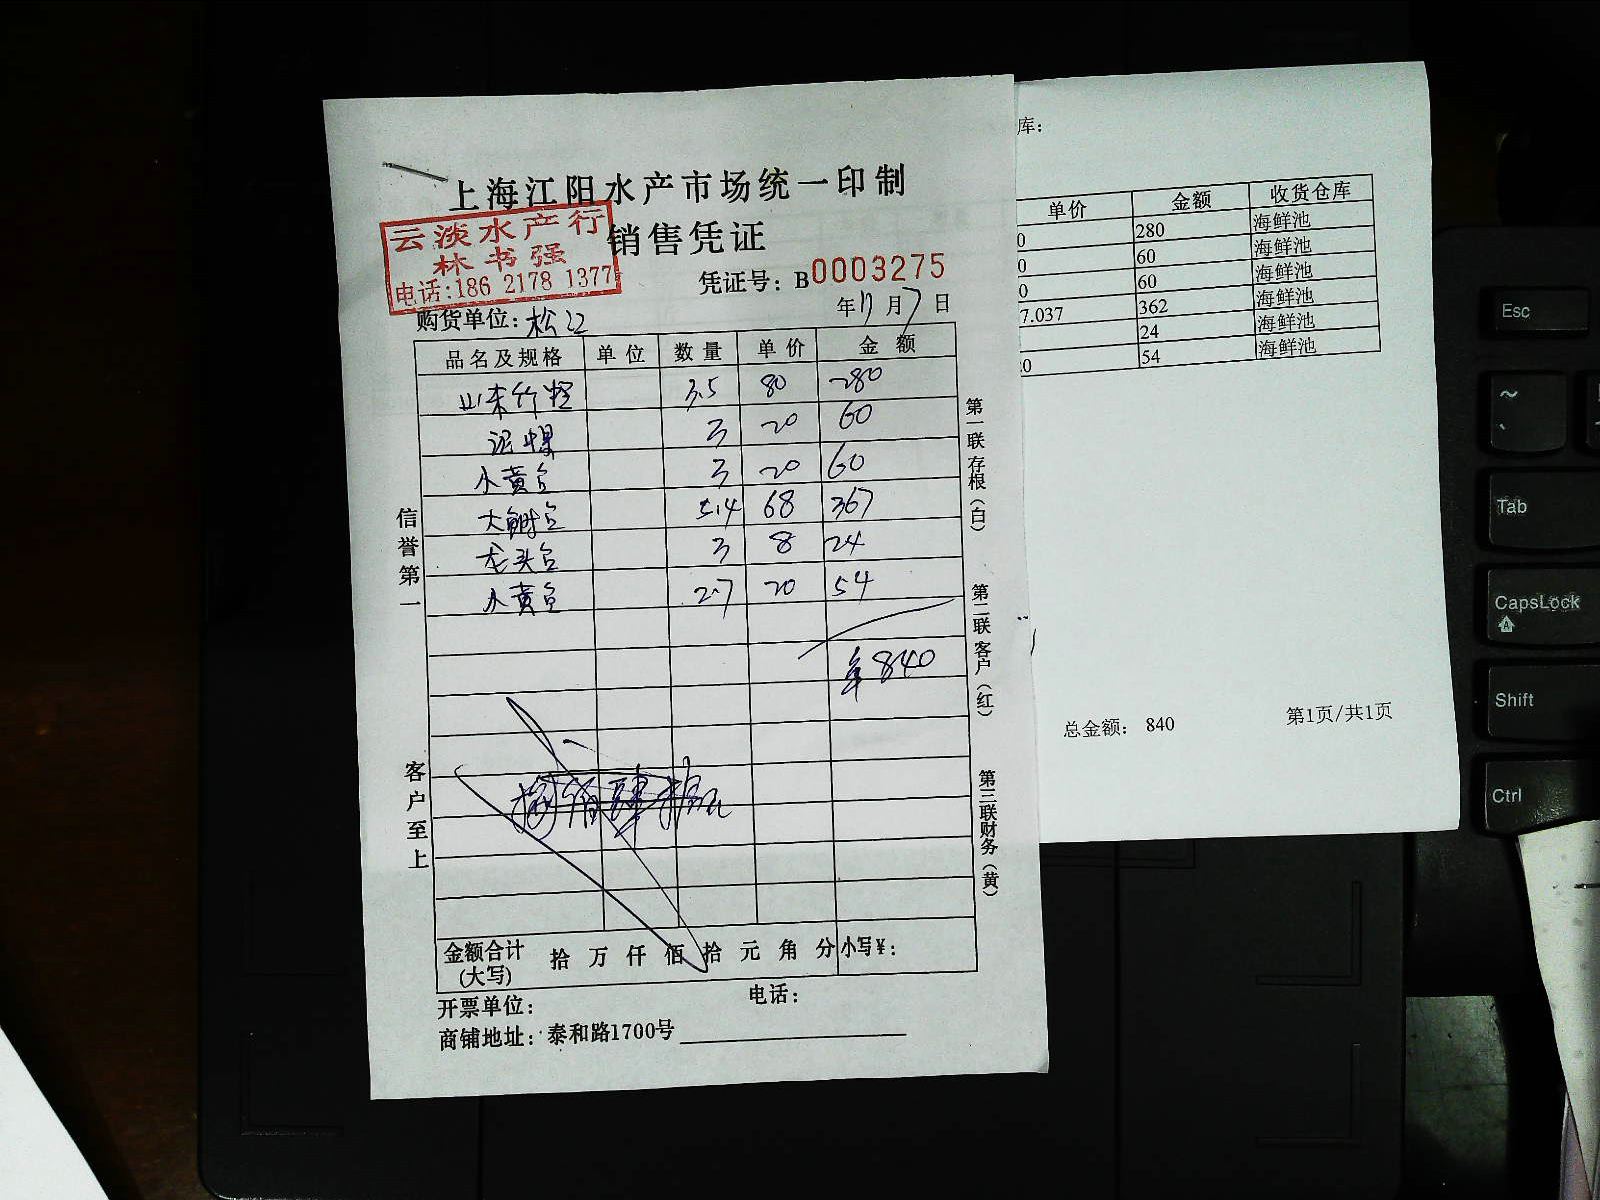 上海江阳水产市场统一印制
销售凭证
云淡水产行
林书强
电话:186 2178 1377
凭证号: B0003275
购货单位: 松江
年11月7日
品名及规格 单位 数量 单价 金额
山东竹蛏 3.5 80 280
泥螺 3 20 60
小黄鱼 3 20 60
大鲥鱼 5.4 68 367
龙头鱼 3 8 24
小黄鱼 2.7 20 54
¥840
捌佰肆拾元
金额合计(大写) 拾 万 仟 佰 拾 元 角 分 小写¥:
开票单位: 电话:
商铺地址: 泰和路1700号
信誉第一
客户至上
第一联存根(白)
第二联客户(红)
第三联财务(黄)
库:
单价 金额 收货仓库
0 280 海鲜池
0 60 海鲜池
0 60 海鲜池
7.037 362 海鲜池
24 海鲜池
0 54 海鲜池
总金额: 840
第1页/共1页
Esc
~
Tab
CapsLock
A
Shift
Ctrl